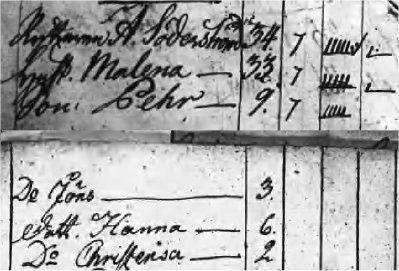 A. Söderström 34. 7
Hust. Malena — 33. 7
Son: Pehr — 9. 7
Do Jöns — 3.
Dott. Hanna — 6.
Do Christensa — 2